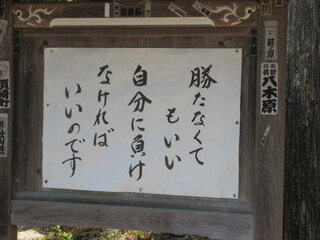 勝たなくて
もいい
自分に負け
なければ
いいのです
八木原